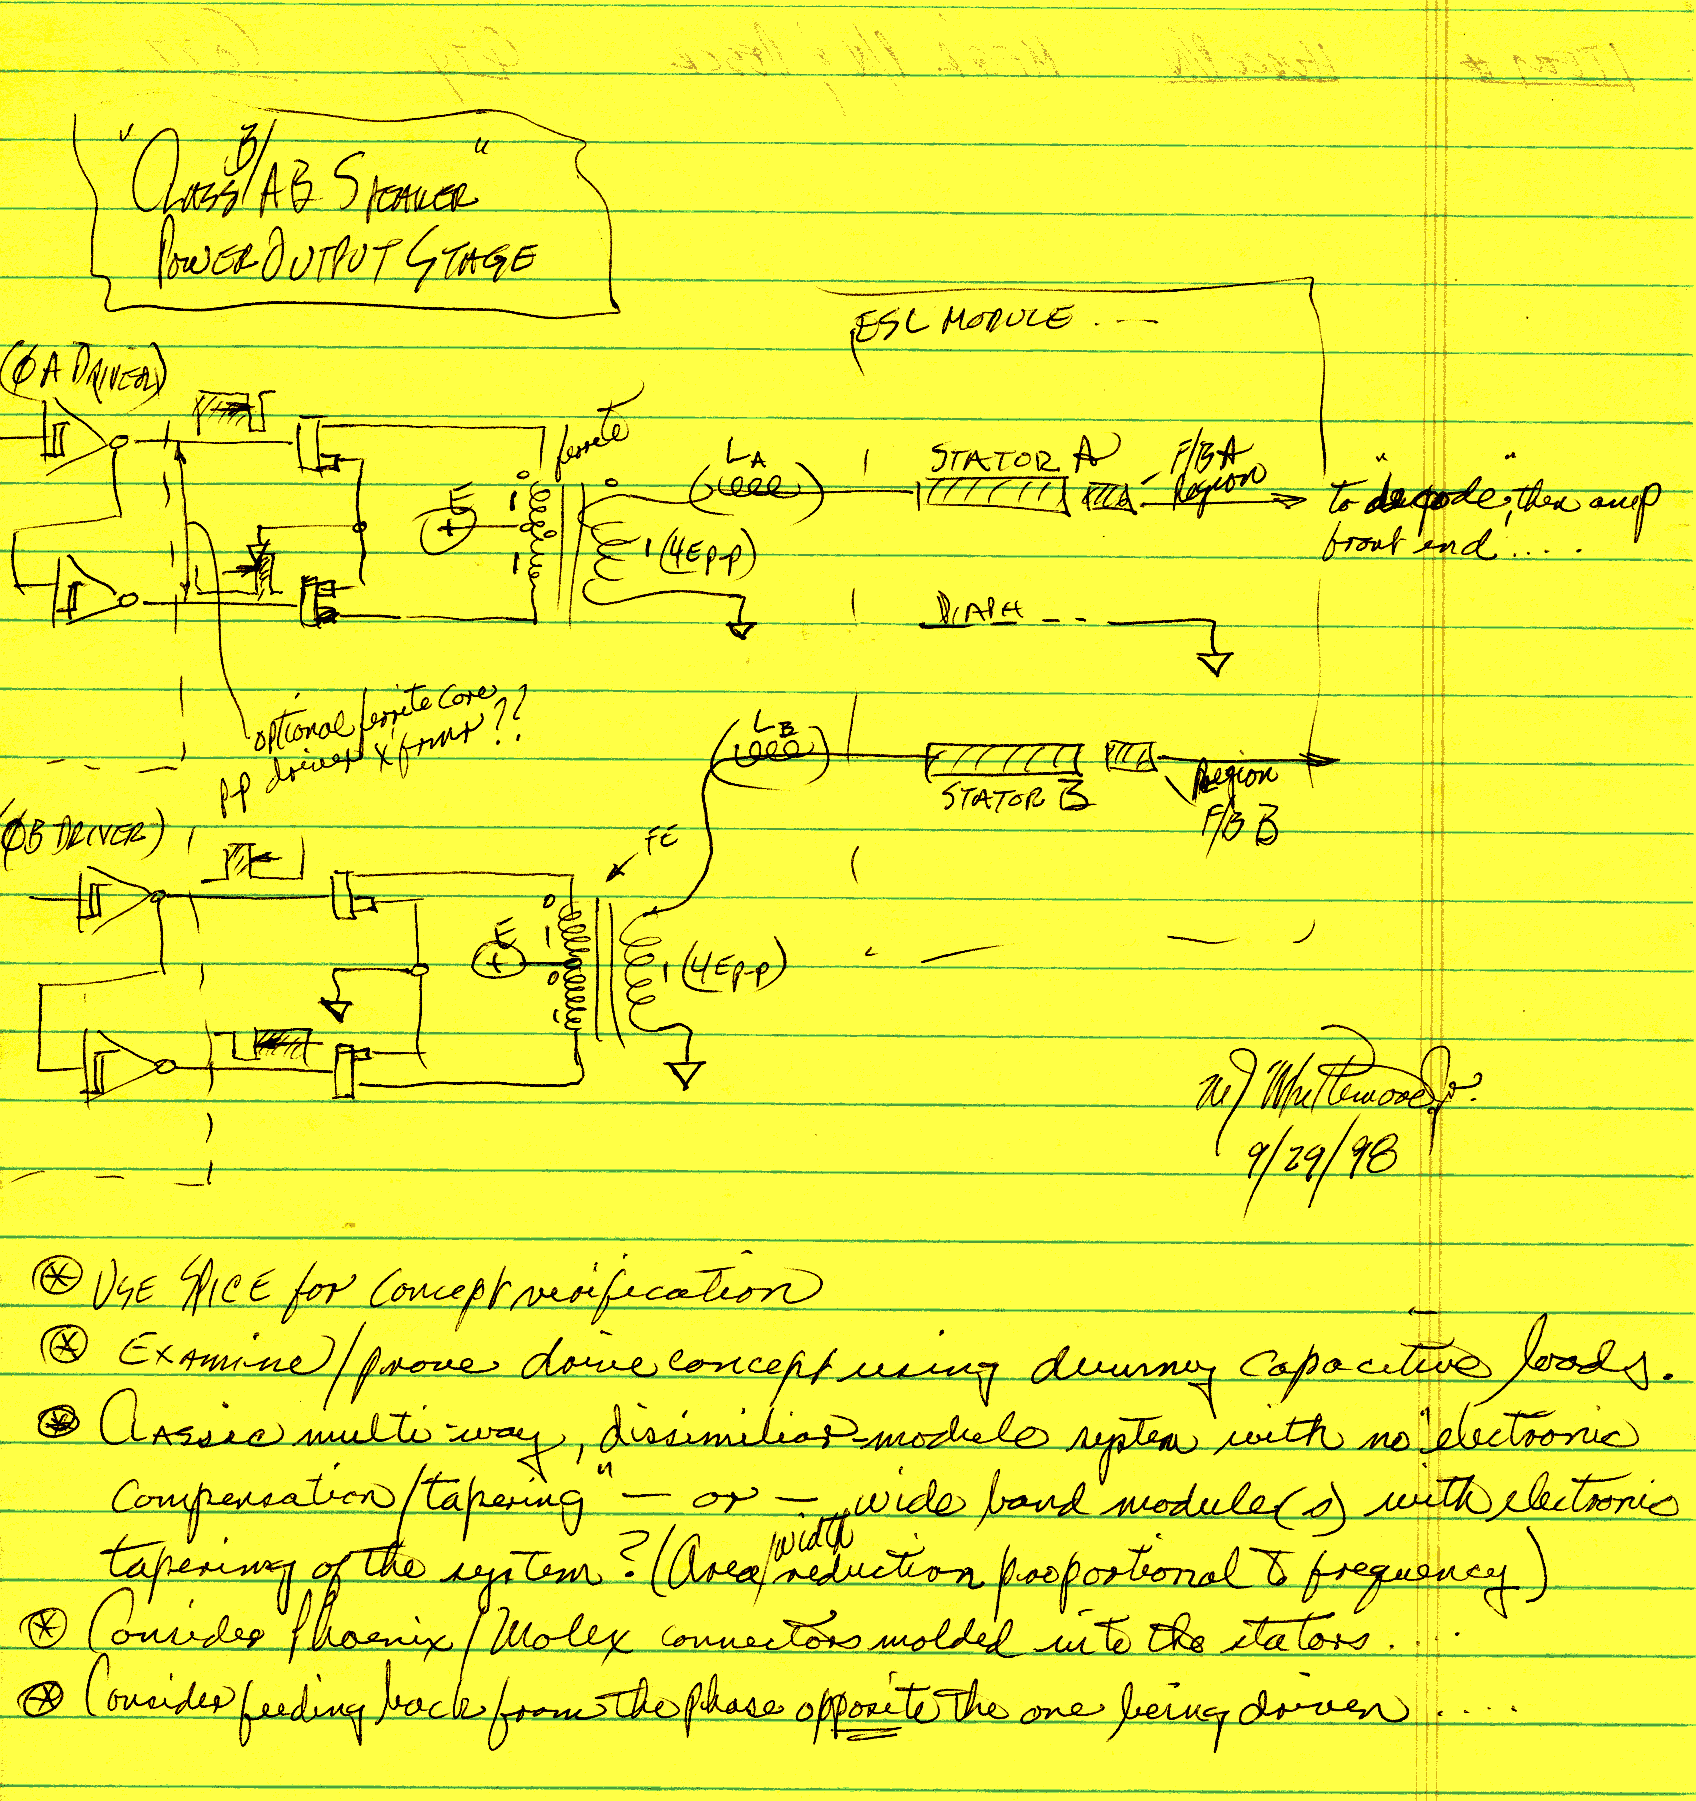 "Class B/AB Speaker"
Power Output Stage
ESL Module ....
(ØA Driver)
ferrite
LA
Stator A
F/B A
Region
to "decode", then amp
front end ....
E
+
1
1
1 (4Ep-p)
Diaph
optional ferrite core
pp driver xfrmr??
LB
Stator B
Region
F/B B
(ØB Driver)
FE
E
+
1
1
1 (4Ep-p)
9/29/98
* Use SPICE for concept verification
* Examine/prove drive concept using dummy capacitive loads.
* Classic multi-way, dissimiliar-module system with no "electronic
compensation/tapering" — or — wide band module(s) with electronic
tapering of the system? (Area/width reduction proportional to frequency)
* Consider Phoenix/Molex connectors molded into the stators....
* Consider feeding back from the phase opposite the one being driven ....